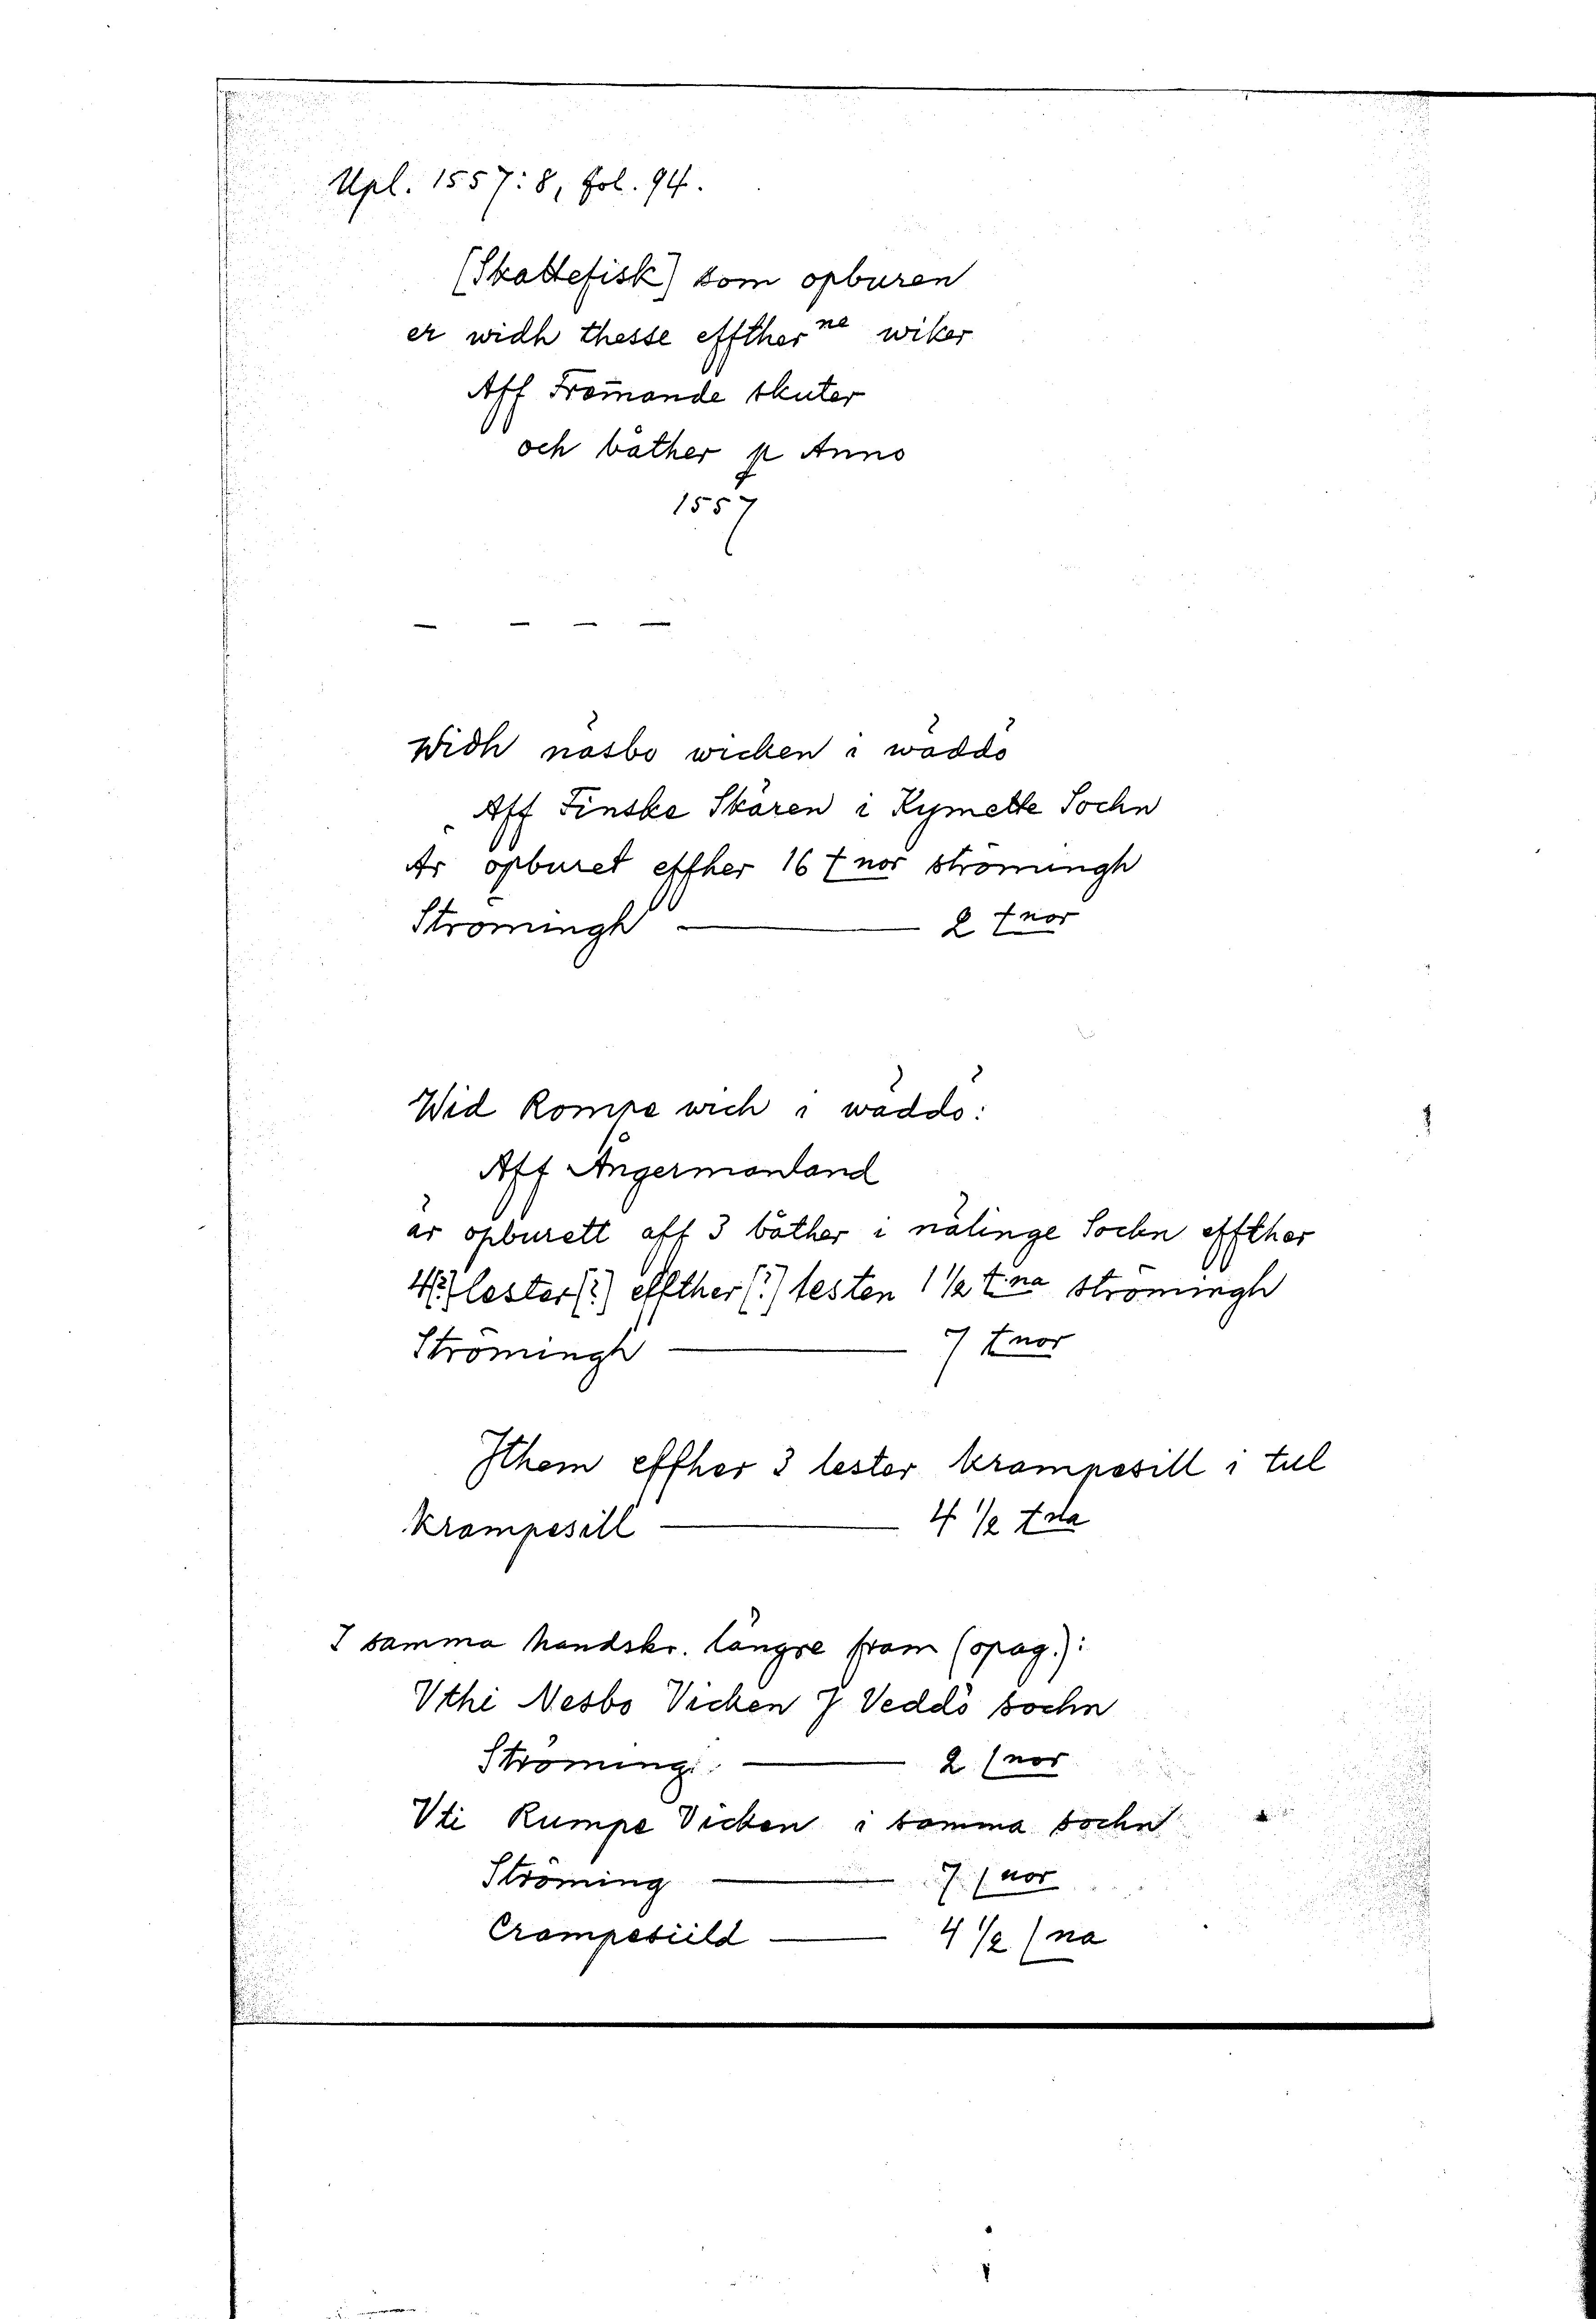 Upl. 1557:8, fol. 94.
[Skattefisk] som opburen
er widh thesse effther ne wiker
Aff Fromande skuter
och båther p Anno
1557
– – – –
Widh näsbo wicken i wäddö
Aff Finske Skären i Kymelte Sochn
Är opburet effher 16 t nor strömingh
Strömingh — 2 t nor
Wid Rompe wich i wäddö:
Aff Ångermanland
är opburett aff 3 båther i nälinge Sochn effther
4(?) lester(?) effther(?) lesten 1 1/2 t na strömingh
Strömingh — 7 t nor
Jthem effher 3 lester krampesill i tul
krampesill — 4 1/2 t na
I samma handskr. längre fram (opag.):
Vthi Nesbo Vicken J Veddö sochn
Ströming — 2 t nor
Vti Rumpe Vicken i samma sochn
Ströming — 7 t nor
Crampesiild — 4 1/2 t na